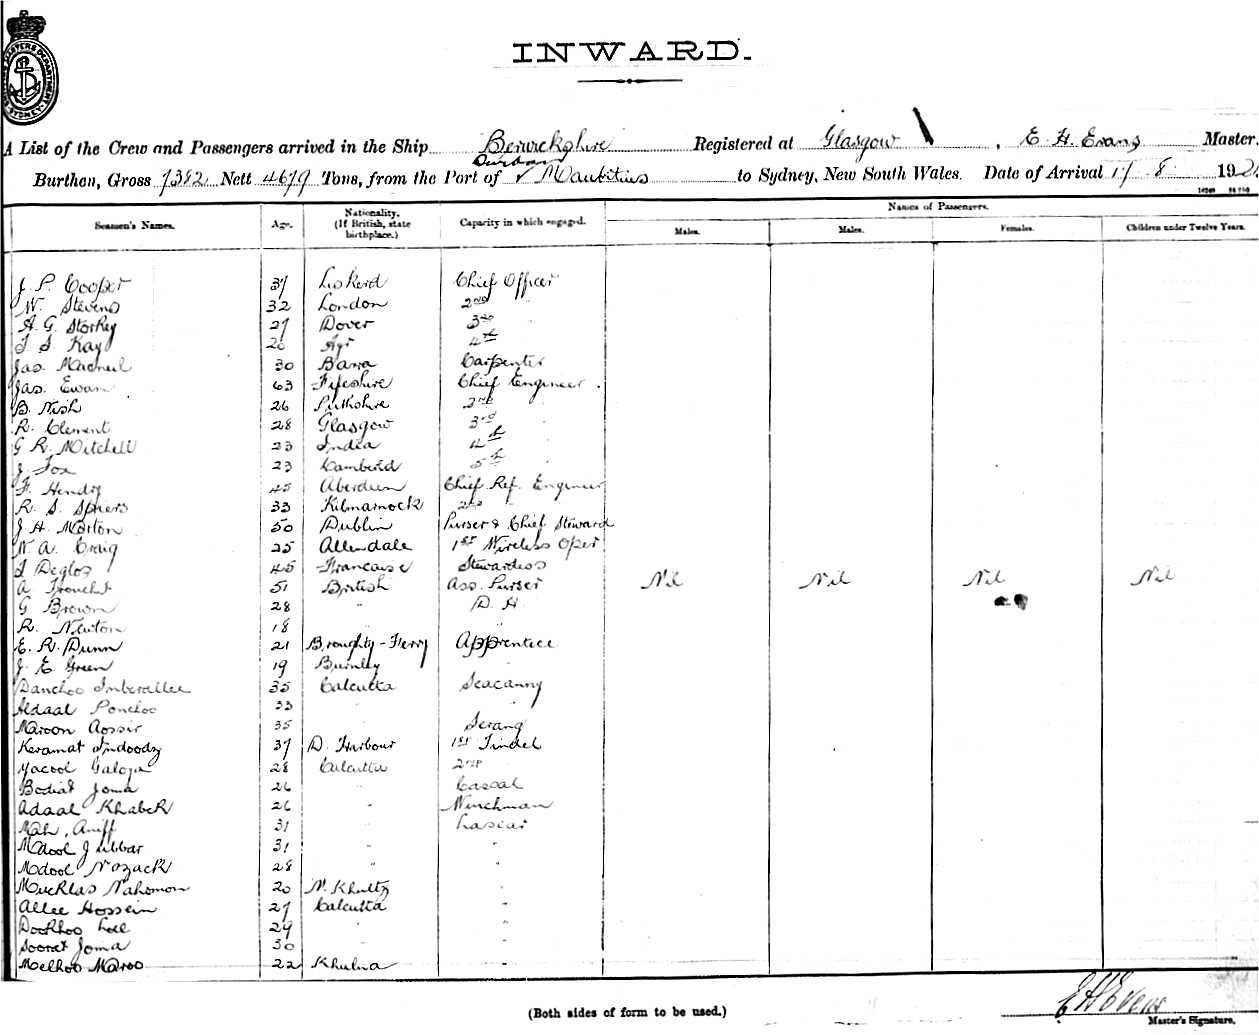 INWARD.
A List of the Crew and Passengers arrived in the Ship Berwickshire Registered at Glasgow, E. H. Evans Master.
Durban
Burthen, Gross 7382 Nett 4679 Tons, from the Port of & Mauritius to Sydney, New South Wales. Date of Arrival 17 8 192
Seamen's Names. Age. Nationality. (If British, state birthplace.) Capacity in which engaged. Names of Passengers.
Males. Males. Females. Children under Twelve Years.
J. P. Cooper 37 Liskerd Chief Officer
W. Stevens 32 London 2nd "
A. G. Storkey 27 Dover 3rd
J. S. Kay 20 Ayr 4th
Jas. Macneil 30 Barra Carpenter
Jas. Ewan 63 Fifeshire Chief Engineer.
B. Nish 26 Perthshire 2nd
R. Clement 28 Glasgow 3rd "
G R. Mitchell 23 India 4th
J. Fox 23 5th
F. Hendry 45 Aberdeen Chief Ref. Engineer
R. S. Spiers 33 Kilmarnock 2nd "
J. H. Morton 50 Dublin Purser & Chief Steward
W. A. Craig 25 Allendale 1st Wireless Oper
Deglos 45 Francaise Stewardess
A 51 British Ass. Purser Nil Nil Nil Nil
G. Brown 28 " D. H.
R. Newton 18 " "
E. R. Dunn 21 Broughty-Ferry Apprentice
J. E. Green 19 Burnley "
Danchoo Imberallee 35 Calcutta Seacanny
Aldaal Ponchoo 33 " "
Maroon Aossir 35 " Serang
Keramat Indoody 37 D. Harbour 1st Tindel
Yacool Galoza 28 Calcutta 2nd "
Bodiat Joma 26 " Cassal
Adaal Khabek 26 " Winchman
Mah. Aniff 31 " Lascar
Mdool Jubbar 31 " "
Mdool Nozack 28 " "
Mucklas Nahomon 20 N. Khultz "
Allee Hossein 27 Calcutta "
Dookhoo Lall 29 " "
Soorat Joma 30 " "
Melhoo Maroo 22 Khulna "
(Both sides of form to be used.)
E H Evans
Master's Signature.